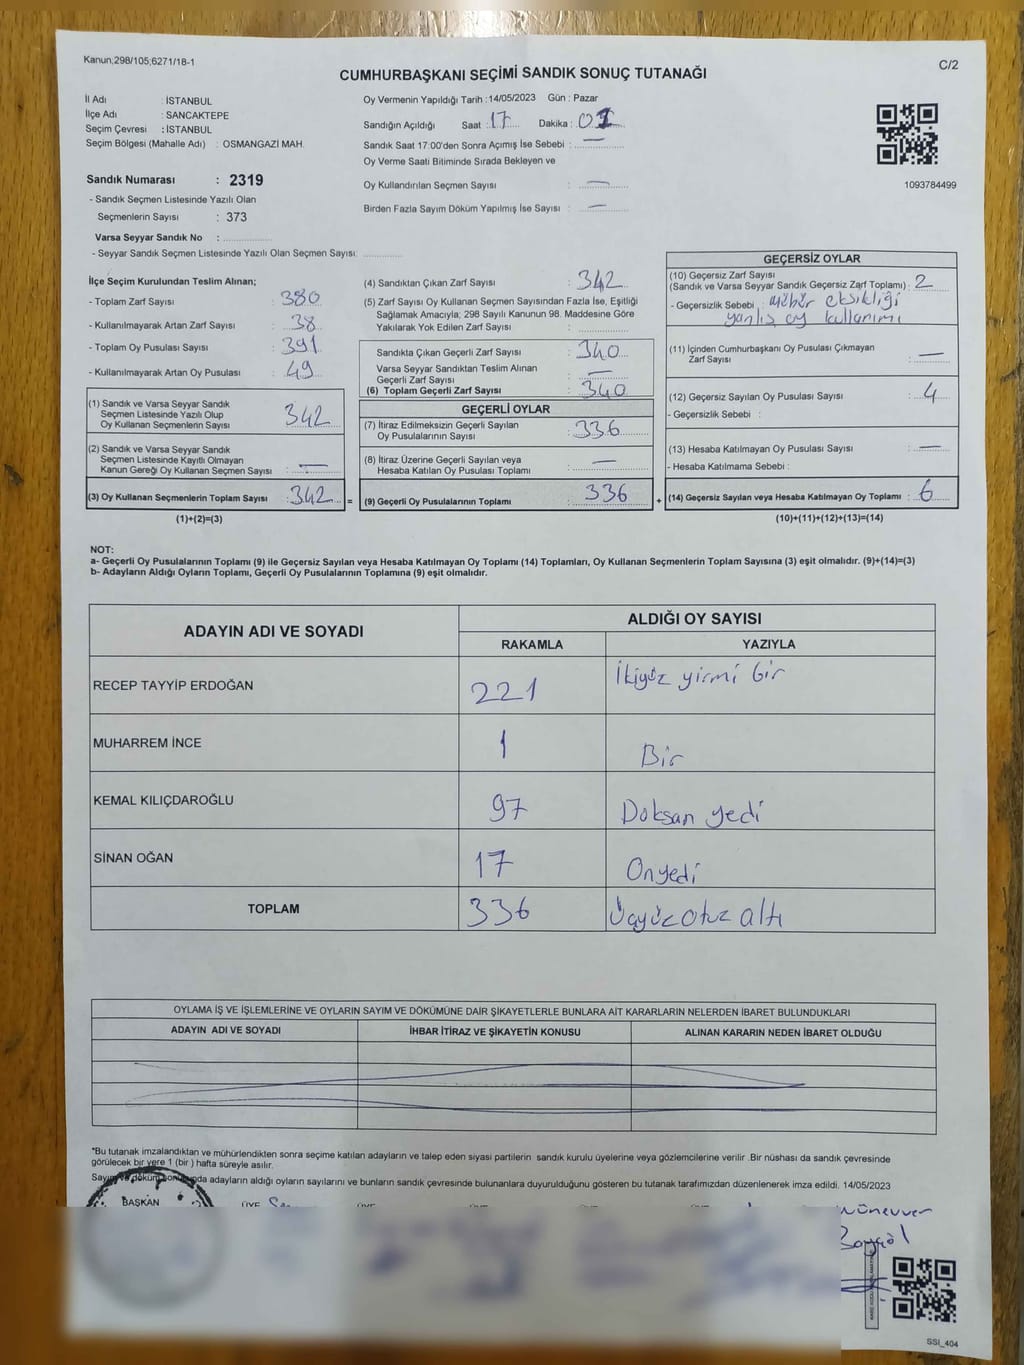 Kanun;298/105;6271/18-1
C/2
CUMHURBAŞKANI SEÇİMİ SANDIK SONUÇ TUTANAĞI
İl Adı : İSTANBUL
İlçe Adı : SANCAKTEPE
Seçim Çevresi : İSTANBUL
Seçim Bölgesi (Mahalle Adı) : OSMANGAZİ MAH.
Sandık Numarası : 2319
- Sandık Seçmen Listesinde Yazılı Olan
Seçmenlerin Sayısı : 373
Varsa Seyyar Sandık No :
- Seyyar Sandık Seçmen Listesinde Yazılı Olan Seçmen Sayısı:
Oy Vermenin Yapıldığı Tarih :14/05/2023 Gün : Pazar
Sandığın Açıldığı Saat : 17 Dakika :
Sandık Saat 17:00'den Sonra Açımış İse Sebebi : —
Oy Verme Saati Bitiminde Sırada Bekleyen ve
Oy Kullandırılan Seçmen Sayısı : —
Birden Fazla Sayım Döküm Yapılmış İse Sayısı : —
1093784499
İlçe Seçim Kurulundan Teslim Alınan;
- Toplam Zarf Sayısı : 380
- Kullanılmayarak Artan Zarf Sayısı : 38
- Toplam Oy Pusulası Sayısı : 391
- Kullanılmayarak Artan Oy Pusulası : 49
(1) Sandık ve Varsa Seyyar Sandık
Seçmen Listesinde Yazılı Olup
Oy Kullanan Seçmenlerin Sayısı : 342
(2) Sandık ve Varsa Seyyar Sandık
Seçmen Listesinde Kayıtlı Olmayan
Kanun Gereği Oy Kullanan Seçmen Sayısı : —
(3) Oy Kullanan Seçmenlerin Toplam Sayısı : 342 =
(1)+(2)=(3)
(4) Sandıktan Çıkan Zarf Sayısı : 342
(5) Zarf Sayısı Oy Kullanan Seçmen Sayısından Fazla İse, Eşitliği
Sağlamak Amacıyla; 298 Sayılı Kanunun 98. Maddesine Göre
Yakılarak Yok Edilen Zarf Sayısı :
Sandıkta Çıkan Geçerli Zarf Sayısı : 340
Varsa Seyyar Sandıktan Teslim Alınan
Geçerli Zarf Sayısı : —
(6) Toplam Geçerli Zarf Sayısı : 340
GEÇERLİ OYLAR
(7) İtiraz Edilmeksizin Geçerli Sayılan
Oy Pusulalarının Sayısı : 336
(8) İtiraz Üzerine Geçerli Sayılan veya
Hesaba Katılan Oy Pusulası Toplamı : —
(9) Geçerli Oy Pusulalarının Toplamı : 336 +
GEÇERSİZ OYLAR
(10) Geçersiz Zarf Sayısı
(Sandık ve Varsa Seyyar Sandık Geçersiz Zarf Toplamı) : 2
- Geçersizlik Sebebi : mühür eksikliği
yanlış oy kullanımı
(11) İçinden Cumhurbaşkanı Oy Pusulası Çıkmayan
Zarf Sayısı : —
(12) Geçersiz Sayılan Oy Pusulası Sayısı : 4
- Geçersizlik Sebebi :
(13) Hesaba Katılmayan Oy Pusulası Sayısı : —
- Hesaba Katılmama Sebebi :
(14) Geçersiz Sayılan veya Hesaba Katılmayan Oy Toplamı : 6
(10)+(11)+(12)+(13)=(14)
NOT:
a- Geçerli Oy Pusulalarının Toplamı (9) ile Geçersiz Sayılan veya Hesaba Katılmayan Oy Toplamı (14) Toplamları, Oy Kullanan Seçmenlerin Toplam Sayısına (3) eşit olmalıdır. (9)+(14)=(3)
b- Adayların Aldığı Oyların Toplamı, Geçerli Oy Pusulalarının Toplamına (9) eşit olmalıdır.
ADAYIN ADI VE SOYADI
ALDIĞI OY SAYISI
RAKAMLA YAZIYLA
RECEP TAYYİP ERDOĞAN 221 İkiyüz yirmi bir
MUHARREM İNCE 1 Bir
KEMAL KILIÇDAROĞLU 97 Doksan yedi
SİNAN OĞAN 17 Onyedi
TOPLAM 336 Üçyüz otuz altı
OYLAMA İŞ VE İŞLEMLERİNE VE OYLARIN SAYIM VE DÖKÜMÜNE DAİR ŞİKAYETLERLE BUNLARA AİT KARARLARIN NELERDEN İBARET BULUNDUKLARI
ADAYIN ADI VE SOYADI İHBAR İTİRAZ VE ŞİKAYETİN KONUSU ALINAN KARARIN NEDEN İBARET OLDUĞU
*Bu tutanak imzalandıktan ve mühürlendikten sonra seçime katılan adayların ve talep eden siyasi partilerin sandık kurulu üyelerine veya gözlemcilerine verilir .Bir nüshası da sandık çevresinde
görülecek bir yere 1 (bir ) hafta süreyle asılır.
Sayım ve döküm sonucunda adayların aldığı oyların sayılarını ve bunların sandık çevresinde bulunanlara duyurulduğunu gösteren bu tutanak tarafımızdan düzenlenerek imza edildi. 14/05/2023
BAŞKAN ÜYE
Münevver
SSİ_404